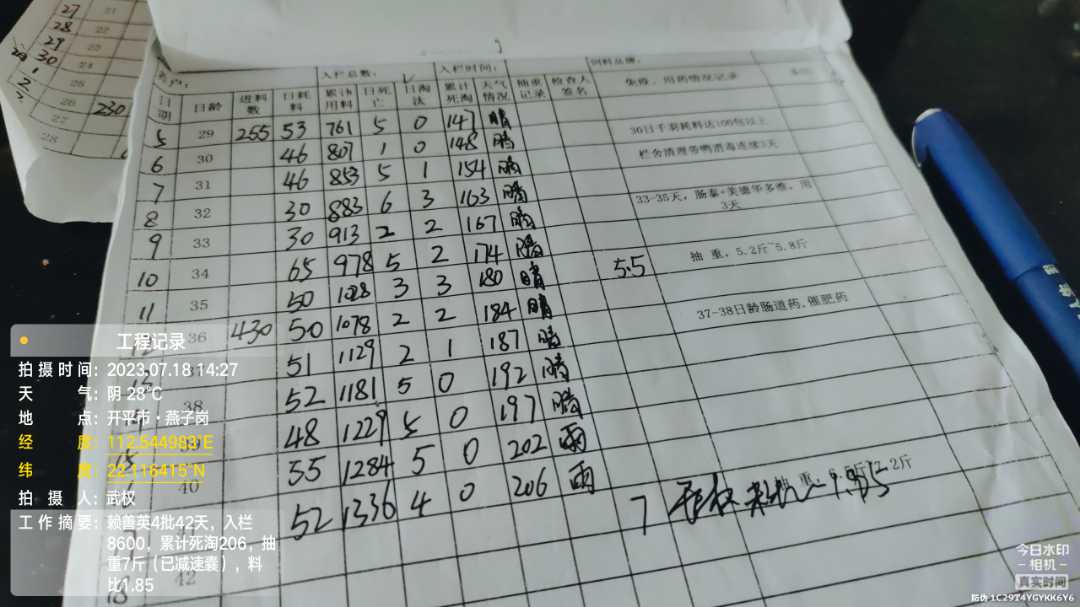 27 21
28 22
29 23
30 24
1 25
2 26 230
入栏总数： 入栏时间： 饲料品牌：
日期 日龄 进料数 日耗料 累计用料 日死亡 日淘汰 累计死淘 天气情况 抽重记录 检查人签名 免疫、用药情况记录
5 29 255 53 761 5 0 147 晴 30日千羽耗料达100包以上
6 30 46 807 1 0 148 晴 栏舍清理带鸭消毒连续3天
7 31 46 853 5 1 154 晴
8 32 30 883 6 3 163 晴 33-35天，肠泰+美德华多维，用3天
9 33 30 913 2 2 167 晴
10 34 65 978 5 2 174 晴 5.5 抽 重，5.2斤~5.8斤
11 35 50 1028 3 3 180 晴
36 430 50 1078 2 2 184 晴 37-38日龄肠道药、催肥药
51 1129 2 1 187 晴
38 52 1181 5 0 192 晴
39 48 1229 5 0 197 晴
40 55 1284 5 0 202 雨
52 1336 4 0 206 雨 7
42
18
工程记录
拍摄时间：2023.07.18 14:27
天 气：阴 28℃
地 点：开平市·燕子岗
经 度：112.544983°E
纬 度：22.116415°N
拍 摄 人：武权
工作摘要：赖善英4批42天，入栏
8600，累计死淘206，抽
重7斤（已减速囊），料
比1.85
今日水印
相机
真实时间
防伪 1C29T4YGYKK6Y6